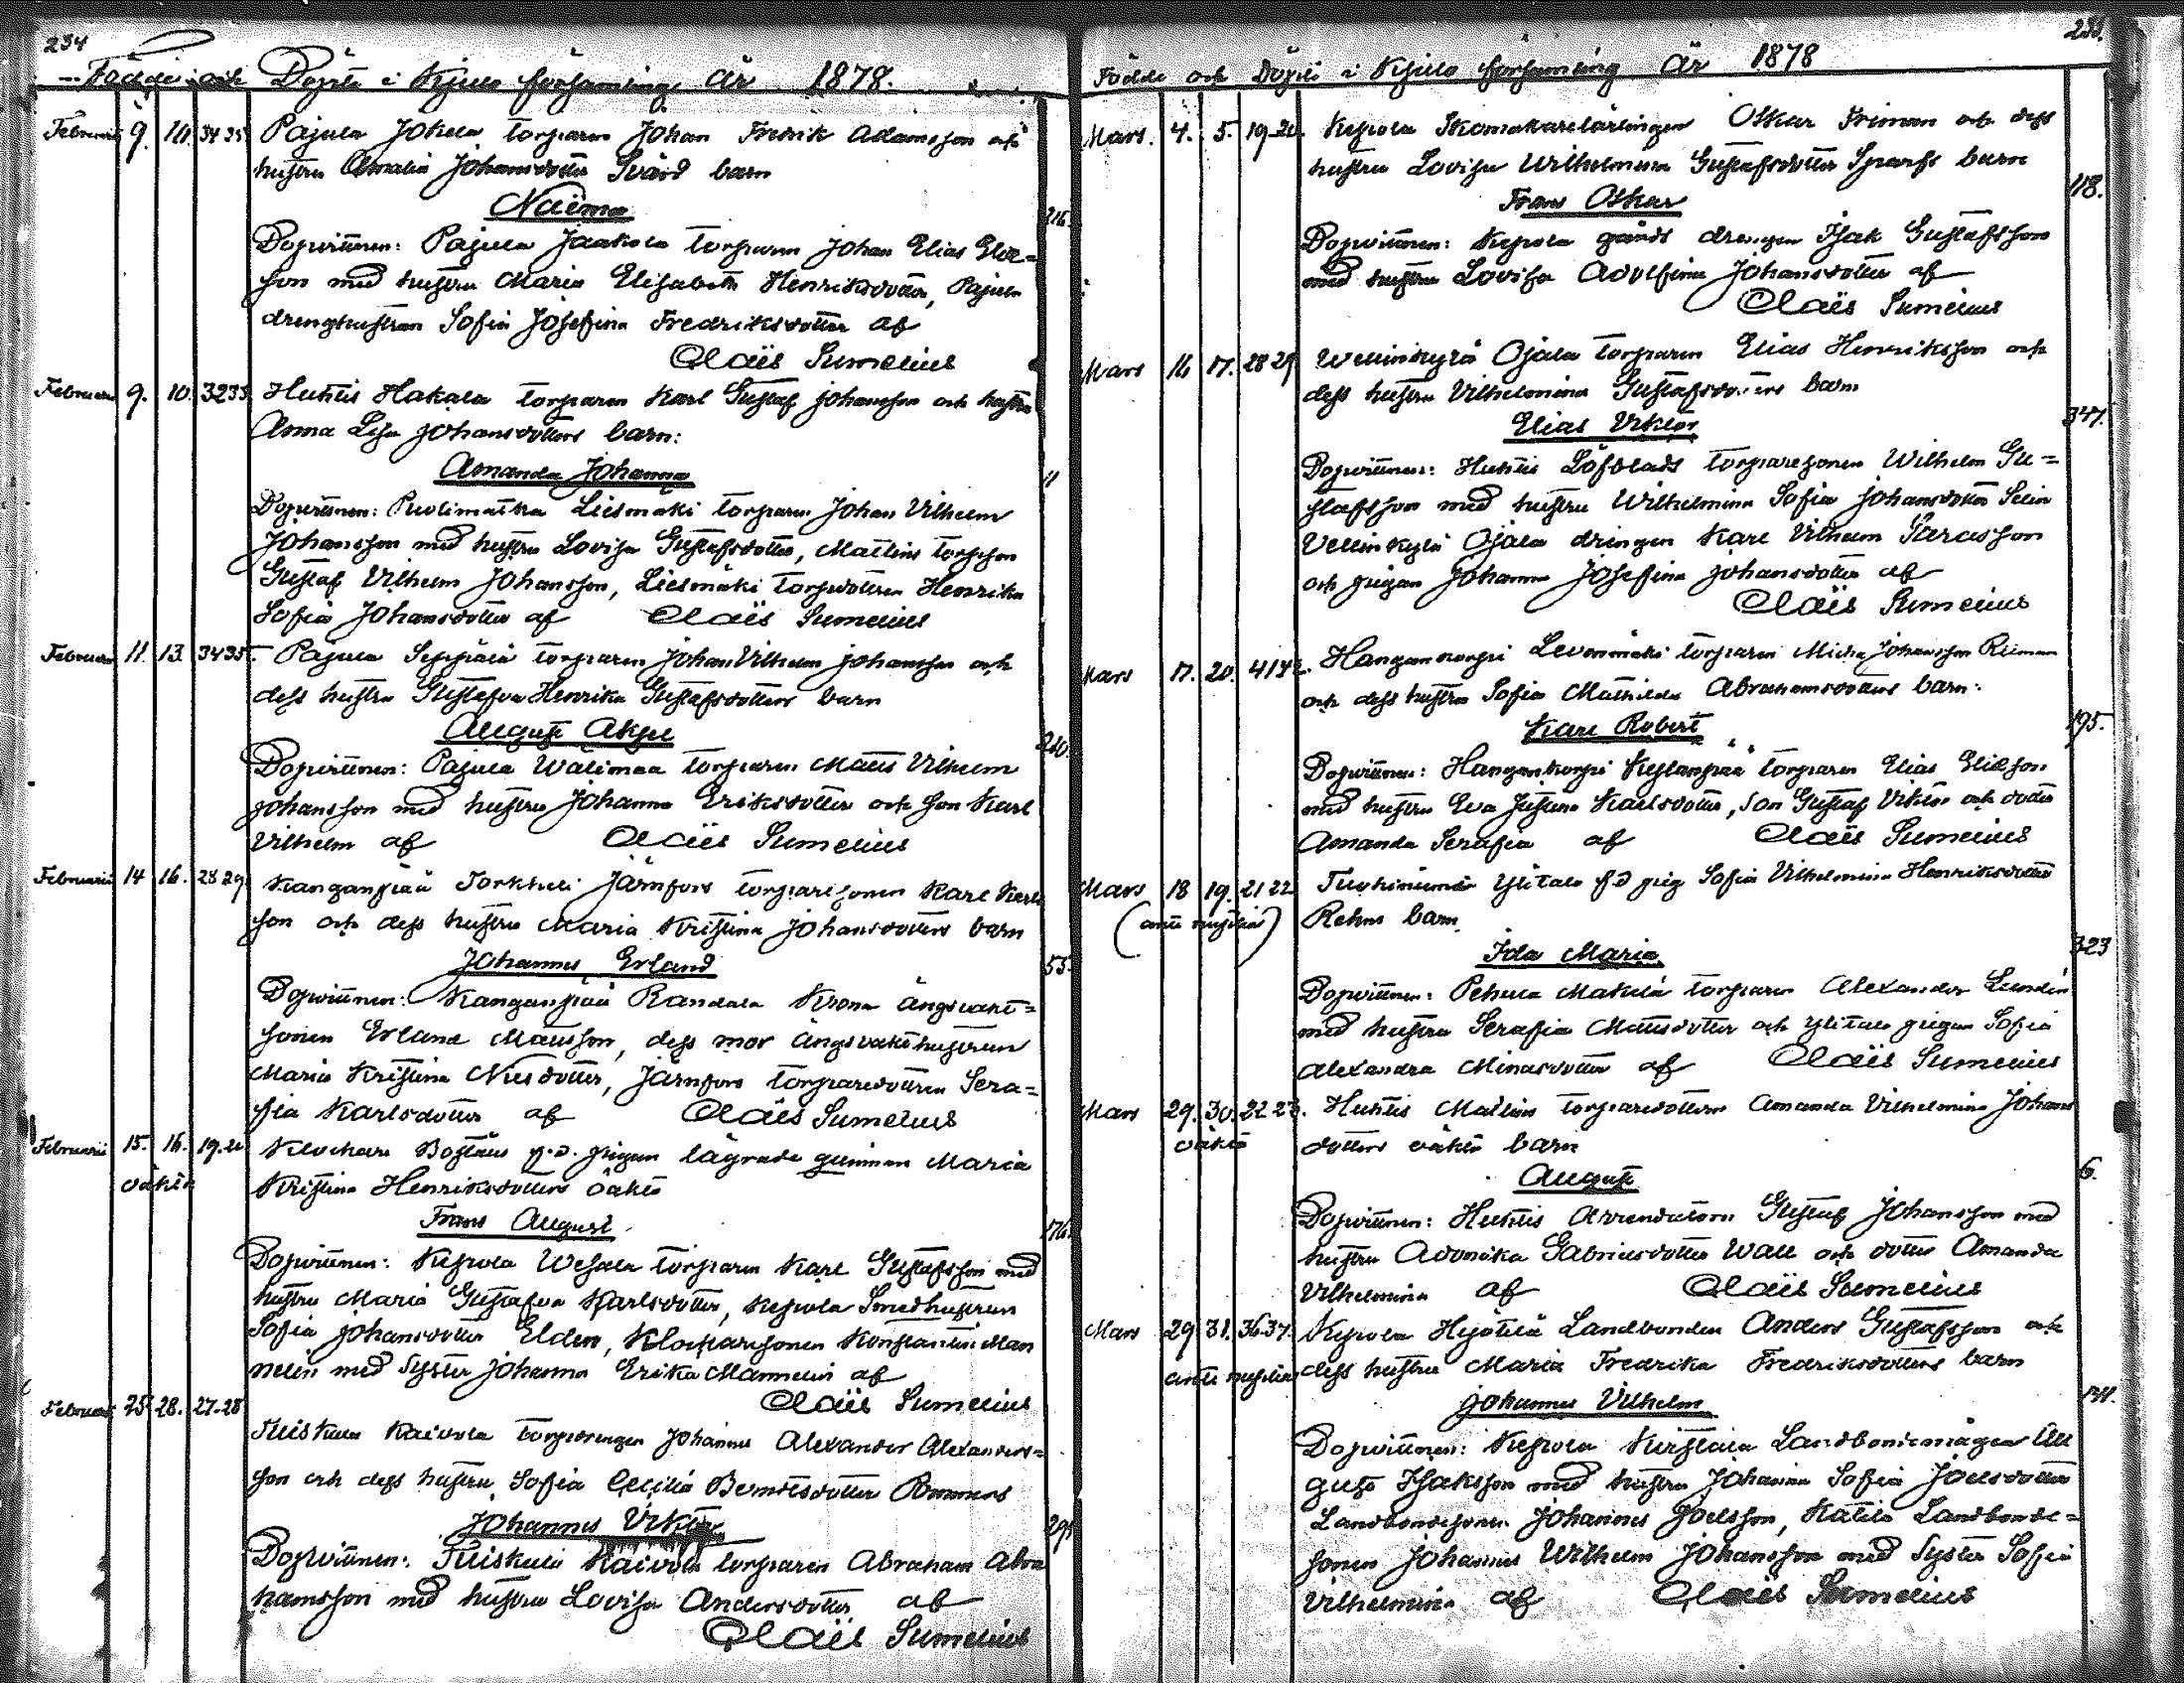 234
Födde och Döpte i Kjulo församling År 1878.
Februari 9. 10. 34 35 Pajula Jokela torparen Johan Fredrik Adamsson och
hustru Amalia Johansdotter Svärd barn
Naëma
216.
Dopvittnen: Pajula Jaakola torparen Johan Elias Elie=
son med hustru Maria Elisabeth Henriksdotter, Pajula
drenghustrun Sofia Josefina Fredriksdotter af
Claës Sumelius
Februari 9. 10. 32 33 Huhtis Hakala torparen Karl Gustaf Johansson och hustru
Anna Lisa Johansdotters barn:
Amanda Johanna
11
Dopvittnen: Puolimatka Liesmäki torparen Johan Vilhelm
Johansson med hustru Lovisa Gustafsdotter, Mattins torpson
Gustaf Vilhelm Johansson, Liesmäki torpdottren Henrika
Sofia Johansdotter af Claës Sumelius
Februari 11. 13. 34 35. Pajula Seppälä torparen Johan Vilhelm Johansson och
dess hustru Gustafva Henrika Gustafsdotters barn
August Aksel
210.
Dopvittnen: Pajula Walimaa torparen Matts Vilhelm
Johansson med hustru Johanna Eriksdotter och son Karl
Vilhelm af Claës Sumelius
Februari 14 16. 28 29 Kanganpää Torkkeli Järnfors torparesonen Karl Karls
son och dess hustru Maria Kristina Johansdotters barn
Johannes Erland
55.
Dopvittnen: Kanganpää Randala Krono ängsvakt=
sonen Erland Mattsson, dess mor ängsvakthustrun
Maria Kristina Nilsdotter, Järnfors torparedottren Sera=
fia Karlsdotter af Claës Sumelius
Februari 15. 16. 19. 20 Klockare Boställs pigan lägrade qvinnan Maria
oäkta Kristina Henriksdotters oäkta
Frans August
176.
Dopvittnen: Kepola Wesala torparen Karl Gustafsson med
hustru Maria Gustafva Karlsdotter, Kepola Smedhustrun
Sofia Johansdotter Elden, Klockaresonen Konstantin Man
nelin med Syster Johanna Erika Mannelin af
Claës Sumelius
Februari 25 28. 27. 28
Kaivola torpdrengen Johannes Alexander Alexanders=
son och dess hustru Sofia Cecilia Berndtsdotter
Johannes Viktor
Dopvittnen: Kaivola torparen Abraham Abra
hamsson med hustru Lovisa Andersdotter af
Claës Sumelius
235.
Födde och Döpte i Kjulo församling År 1878
Mars. 4. 5. 19 20. Kepola Skomakarelärlingen Oskar Friman och dess
hustru Lovisa Wilhelmina Gustafsdotter Sparfs barn
Frans Oskar
118.
Dopvittnen: Kepola gårds drengen Isak Gustafsson
med hustru Lovisa Adolfina Johansdotter af
Claës Sumelius
Mars 16 17. 28 29 Wellinkylä Ojala torparen Elias Henriksson och
dess hustru Vilhelmina Gustafsdotters barn
Elias Viktor
347.
Dopvittnen: Huhtis Löfblads torparesonen Wilhelm Gu=
stafsson med hustru Wilhelmina Sofia Johansdotter Selin
Vellinkylä Ojala drengen Karl Vilhelm
och pigan Johanna Josefina Johansdotter af
Claës Sumelius
Mars 17. 20. 41 42. Hangankorpi Levonmäki torparen Micha Johansson Reiman
och dess hustru Sofia Mathilda Abrahamsdotters barn:
Karl Robert
195.
Dopvittnen: Hangankorpi Kylänpää torparen Elias Elieson
med hustru Eva Justina Karlsdotter, son Gustaf Viktor och dotter
Amanda Serafia af Claës Sumelius
Mars 18 19. 21 22 Ylitalo pig Sofia Vilhelmina Henriksdotter
(ante nuptias) Rehns barn
Ida Maria
323
Dopvittnen: Pehula Mäkilä torparen Alexander Lundin
med hustru Serafia Mattsdotter och Ylitalo pigan Sofia
Alexandra Minasdotter af Claës Sumelius
Mars 29. 30. 22 23. Huhtis Mattins torparedottren Amanda Vilhelmina Johans
oäkta dotters oäkta barn
August
6.
Dopvittnen: Huhtis Arrendatorn Gustaf Johansson med
hustru Adonika Gabrielsdotter Wall och dotter Amanda
Vilhelmina af Claës Sumelius
Mars 29 31. 36 37. Kepola Hejttilä Landbonden Anders Gustafsson och
ante nuptias dess hustru Maria Fredrika Fredriksdotters barn
Johannes Vilhelm
Dopvittnen: Kepola Kirstala Landbondemågen Au
gust Isaksson med hustru Johanna Sofia Joelsdotter
Landbondesonen Johannes Joelsson, Kattelo Landbonde=
sonen Johannes Wilhelm Johansson med Syster Sofia
Vilhelmina af Claës Sumelius